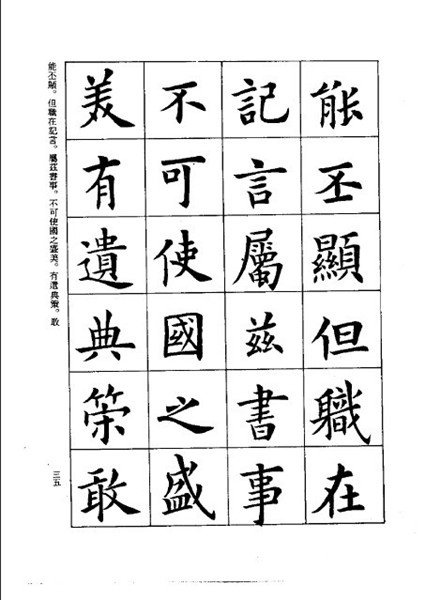 能丕顯但職在
記言屬茲書事
不可使國之盛
美有遺典策敢
能丕顯。但職在記言。屬茲書事。不可使國之盛美。有遺典策。敢
三五